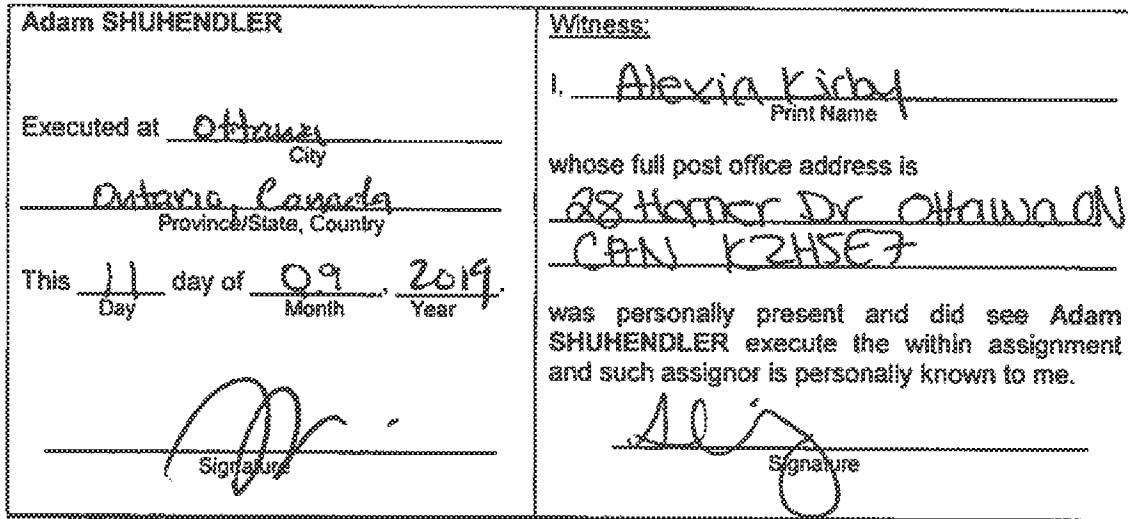 Adam SHUHENDLER
Executed at Ottawa
City
Ontario, Canada
Province/State, Country
This 11 day of 09, 2019.
Day Month Year
Signature
Witness:
I, Alexia Kirby
Print Name
whose full post office address is
28 Horner Dr Ottawa ON
CAN K2H5E7
was personally present and did see Adam
SHUHENDLER execute the within assignment
and such assignor is personally known to me.
Signature